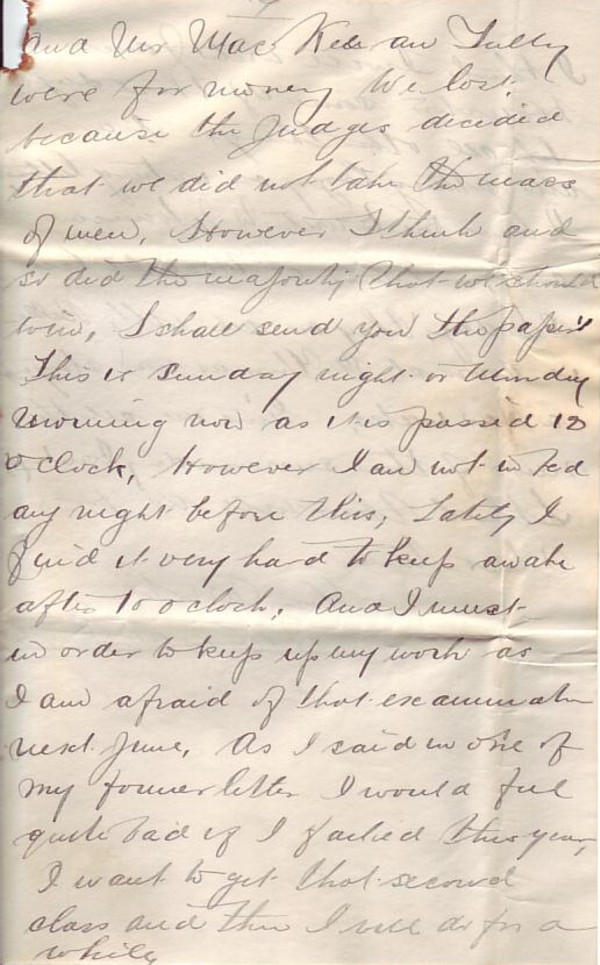 and Mr Mac Kee an Tully
were for money We lost,
because the Judges decided
that we did not take the mass
of men, However I think and
so did the majority that we should
win, I shall send you the papers
This is Sunday night or Monday
morning now as it is passed 12
o'clock, However I am not in bed
any night before this, Lately I
find it very hard to keep awake
after 10 o clock, And I must
in order to keep up my work as
I am afraid of that examination
next June, As I said in one of
my former letter I would feel
quite bad if I failed this year,
I want to get that second
class and then I will do for a
while